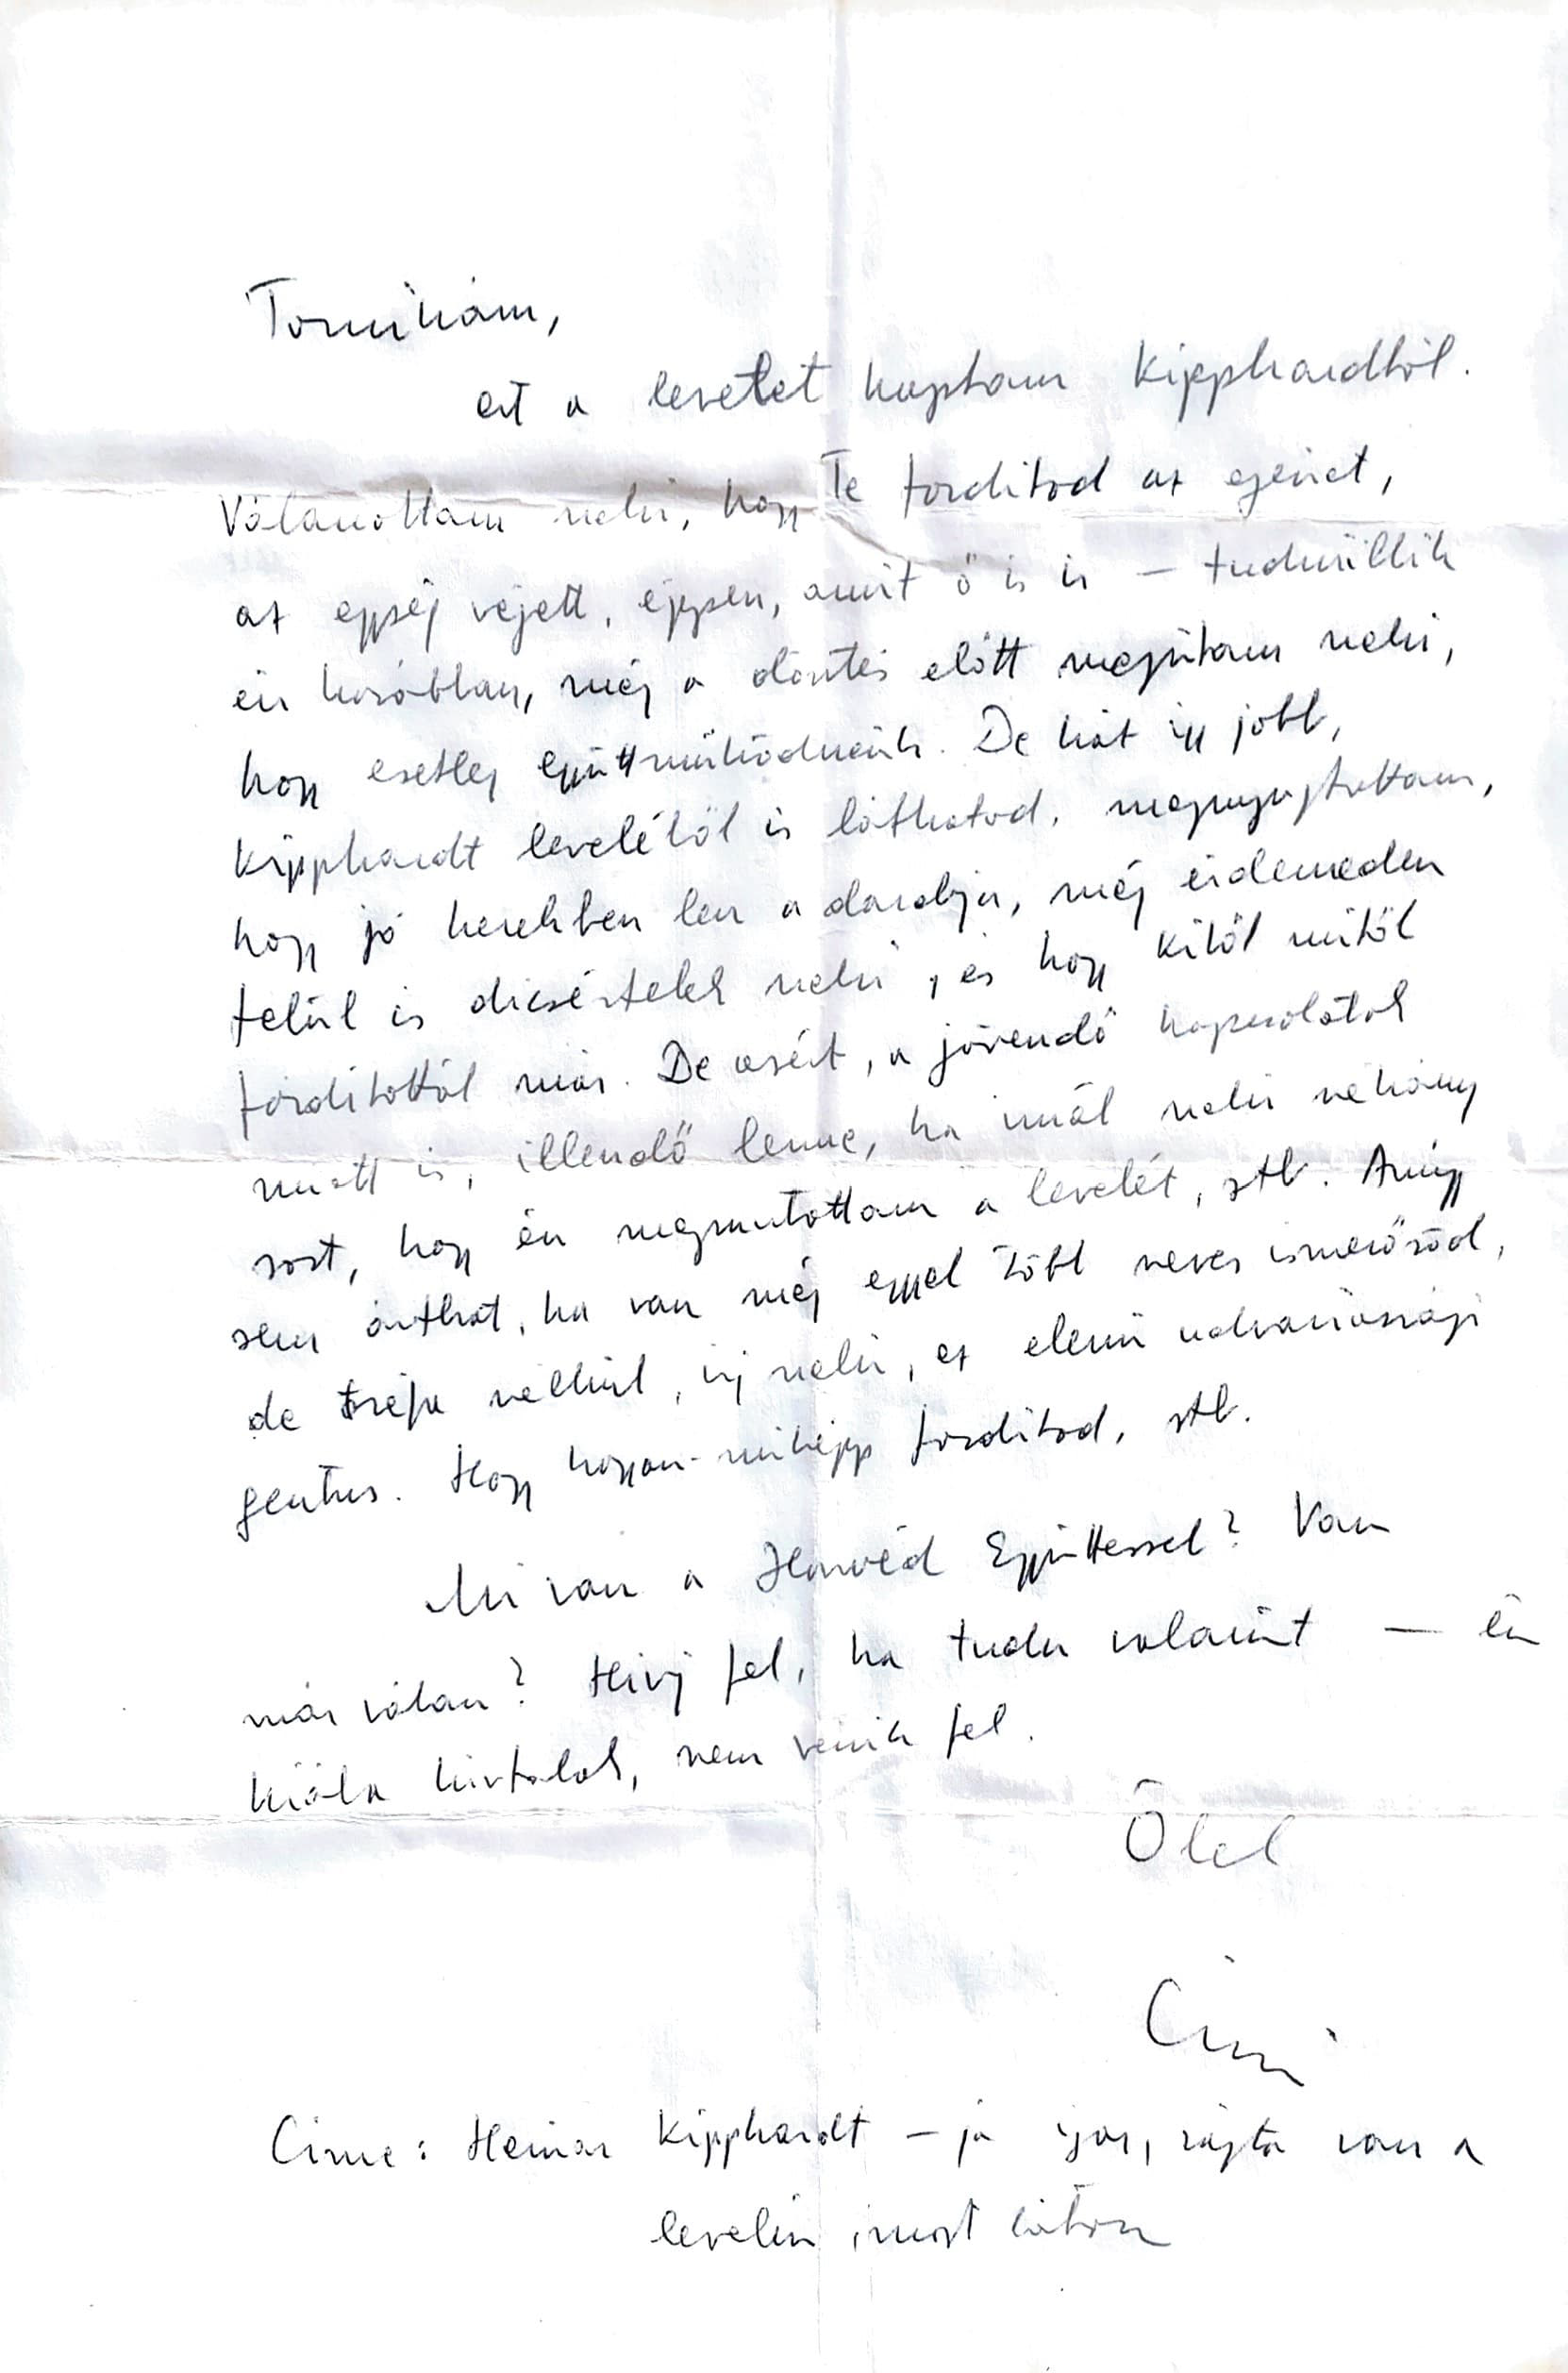 Tomikám,
ezt a levelet kaptam Kipphardttól.
Válaszoltam neki, hogy Te fordítod az egészet,
az egység végett, éppen, amit ő is ír – tudniillik
én korábban, még a döntés előtt megírtam neki,
hogy esetleg együttműködnénk. De hát így jobb,
Kipphardt leveléből is láthatod, megnyugtattam,
hogy jó kezekben lesz a darabja, még érdemeden
felül is dicsértelek neki, és hogy kitől mitől
fordítottál már. De azért, a jövendő kapcsolatok
miatt is, illendő lenne, ha írnál neki néhány
sort, hogy én megmutattam a levelét, stb. Amúgy
sem árthat, ha van még eggyel több neves ismerősöd,
de tréfa nélkül, írj neki, ez elemi udvariassági
gesztus. Hogy hogyan-miképp fordítod, stb.
Mi van a Honvéd Együttessel? Van
már válasz? Hívj fel, ha tudsz valamit — én
hiába hívtalak, nem vennék fel.
Ölel
Cini
Címe: Heinar Kipphardt – ja igen, rajta van a
levelén, most látom